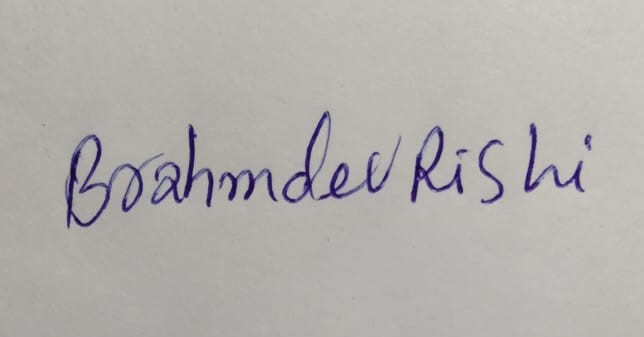 Brahmdev Rishi